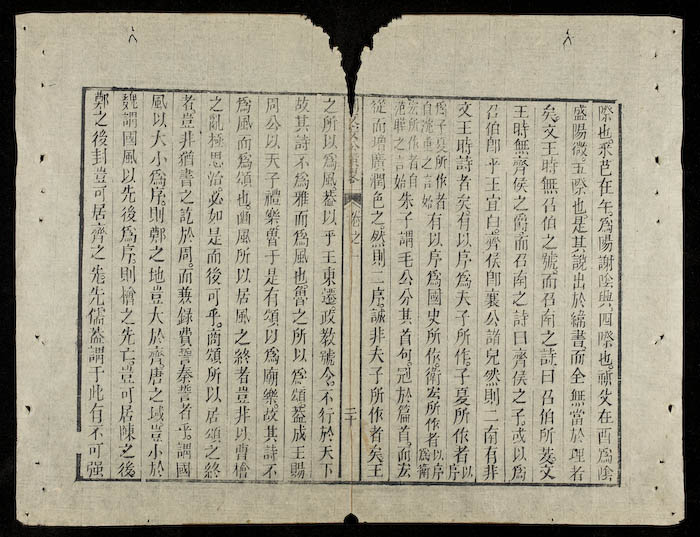 際也采芑在午爲陽謝陰興四際也祈父在酉爲陰
盛陽微五際也是其說出於緯書而全無當於理者
矣文王時無召伯之號而召南之詩曰召伯所茇文
王時無齊侯之爵而召南之詩曰齊侯之子或以爲
召伯卽平王宜臼齊侯卽襄公諸兒然則二南有非
文王時詩者矣有以序爲夫子所作子夏所作者以序
爲子夏所作者自沈重之言始有以序爲國史所作衛宏所作者以序爲衛
宏所作者自范曄之言始朱子謂毛公分其首句冠於篇首而宏
從而增廣潤色之然則二序誠非夫子所作者矣王
卷之一
二十
之所以爲風葢以平王東遷政教號令不行於天下
故其詩不爲雅而爲風也魯之所以爲頌葢成王賜
周公以天子禮樂魯于是有頌以爲廟樂故其詩不
爲風而爲頌也豳風所以居風之終者豈非以曹檜
之亂極思治必如是而後可乎商頌所以居頌之終
者豈非猶書之訖於周而兼錄費誓秦誓者乎謂國
風以大小爲序則鄭之地豈大於齊唐之域豈小於
魏謂國風以先後爲序則檜之先亡豈可居陳之後
鄭之後封豈可居齊之先先儒葢謂于此有不可强